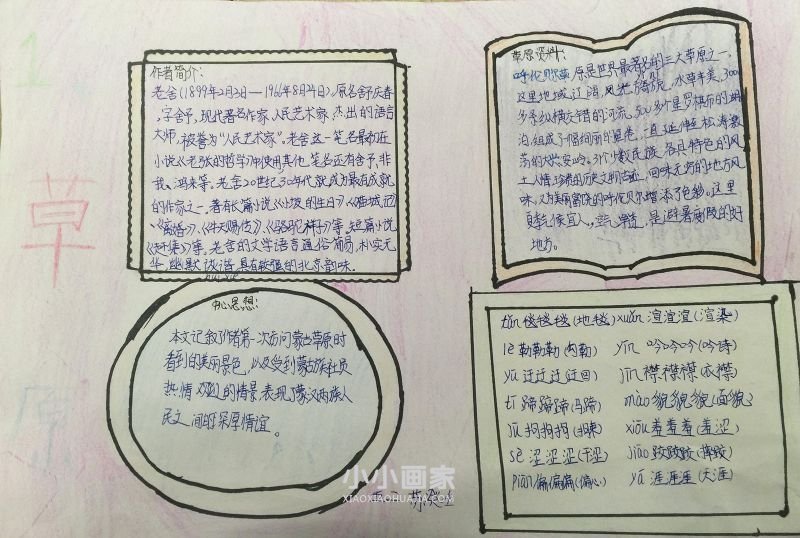 1
草
原
作者简介:
老舍(1899年2月3日—1966年8月24日),原名舒庆春,
字舍予,现代著名作家,人民艺术家,杰出的语言
大师,被誉为“人民艺术家”。老舍这一笔名最初在
小说《老张的哲学》中使用其他笔名还有舍予、非
我、鸿来等。老舍20世纪30年代就成为最有成就
的作家之一。著有长篇小说《小坡的生日》、《猫城记》、
《离婚》、《牛天赐传》、《骆驼祥子》等,短篇小说
《赶集》等。老舍的文学语言通俗简易,朴实无
华,幽默诙谐,具有较强的北京韵味。
草原资料:
呼伦贝尔草原是世界最著名的三大草原之一,
这里地域辽阔,风光旖旎,水草丰美,3000
多条纵横交错的河流,500多个星罗棋布的湖
泊,组成了一幅绚丽的画卷,一直延伸至松涛激
荡的大兴安岭。31个少数民族各具特色的风
土人情,珍稀的历史文物古迹,回味无穷的地方风
味,又为美丽富饶的呼伦贝尔增添了色彩。这里
夏季气候宜人,空气,是避暑度假的好
地方。
中心思想:
本文记叙了作者第一次访问蒙古草原时
看到的美丽景色,以及受到蒙古族社员
热情欢迎的情景表现了蒙汉两族人
民之间的深厚情谊。
tǎn毯毯毯(地毯)xuàn渲渲渲(渲染)
lè勒勒勒(勾勒) yín吟吟吟(吟诗)
yū迂迂迂(迂回) jīn襟襟襟(衣襟)
tí蹄蹄蹄(马蹄) mào貌貌貌(面貌)
jū拘拘拘(拘束) xiū羞羞羞(羞涩)
sè涩涩涩(干涩) jiāo跤跤跤(摔跤)
piān偏偏偏(偏心) yá涯涯涯(天涯)
小小画家
XIAOXIAOHUAJIA.COM